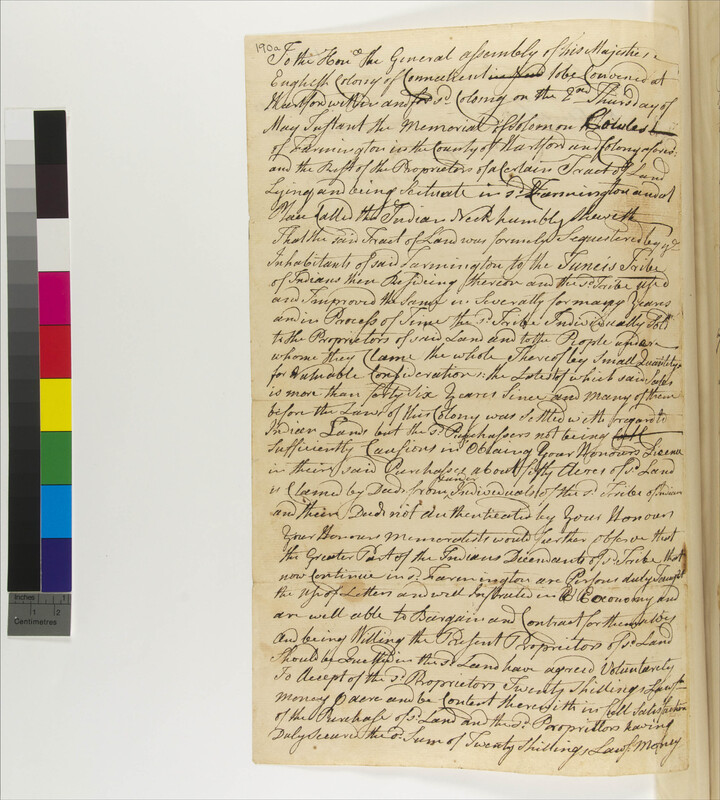 190a
To the Hon.e the General assembly of his Majesties
English Colony of Connecticut to be Convened at
Hartford within and for sd. Colony on the 2nd Thursday of
May Instant the Memorial of Solomon Cowles
of Farmington in the County of Hartford and Colony aforesd:
and the Rest of the Proprietors of a Certain Tract of Land
Lying and being Scituate in sd. Farmington and at
Place Called the Indian Neck humbly Sheweth
That the said Tract of Land was formerly Sequestered by ye
Inhabitants of said Farmington to the Tuncis Tribe
of Indians then Residing thereon and the sd. Tribe used
and Improved the Same in Severalty for many Years
and in Process of Time the sd. Tribe Individually Sold
to the Proprietors of said Land and to the People under
whome they Clame the whole Thereof by Small Quantitys
for Valuable Considerations: the Latest of which said Sales
is more than forty Six Years Since and many of them
before the Laws of this Colony was Settled with regard to
Indian Lands but the sd. Purchassers not being
Sufficiently Causious in Obtaing Your Honours Licence
in their said Purchasses about fifty Acres of sd. Land
is Claimed by Deeds from Individuals of the sd. Tribe of Indians
and their Deeds not Authenticated by Your Honours
Your Honours Memorelists would further observe that
the Greater Part of the Indians Decendants of sd. Tribe that
now Continue in sd. Farmington are Persons duly Taught
the use of Letters and well Instructed in Oeconomy and
are well able to Bargain and Contract for themselves
and being Willing the Present Proprietors of sd. Land
Should be Quetted in the sd. Land have agreed Voluntarely
To Accept of the sd. Proprietors Twenty Shillings Lawfull
money acre and be Content therewith in full Satisfaction
of the Purchase of sd. Land and the sd. Proprietors having
Duly Secured the sd. Sum of Twenty Shillings Lawfl. Money
Inches
1
2
Centimetres